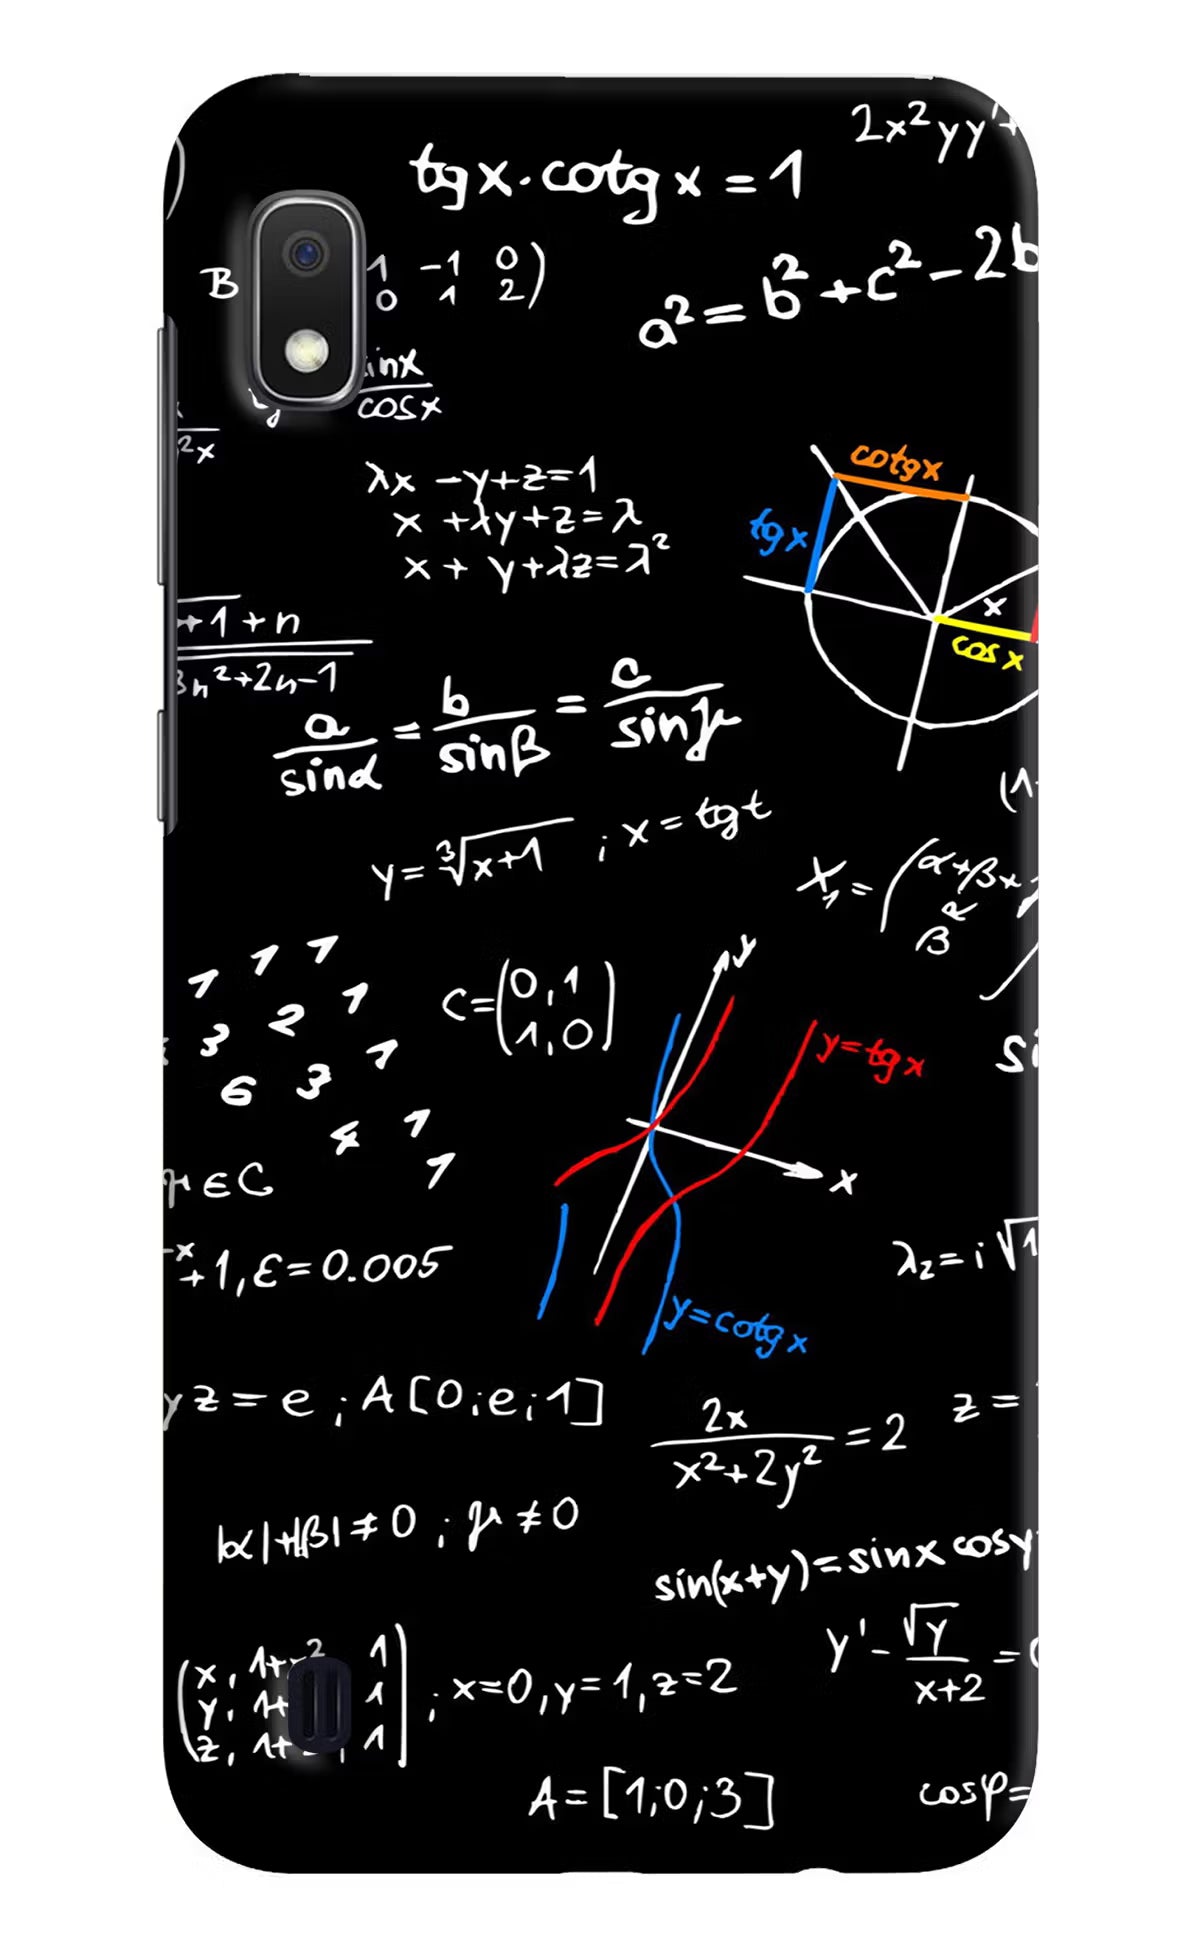 2x²yy'+
tgx·cotgx=1
B 1 -1 0
0 1 2)
a²=b²+c²-2b
inx
cosx
²x
cotgx
tgx
x
cosx
λx -y+z=1
x +λy+z=λ
x + y+λz=λ²
+1+n
3n²+2n-1
a/sinα = b/sinβ = c/sinγ
y=∛x+1 ; x=tgt
(1-
X₁=(α+βx
β R
1 1 1
3 2 1
6 3 1
4 1
1
C=(0,1
1,0)
y
y=tgx
x
y=cotgx
si
μ∈C
-x+1, ε=0.005
λ₂=i√1
yz=e ; A[0;e;1]
2x/x²+2y²=2
z=
|α|+|β|≠0 ; μ≠0
sin(x+y)=sinx cosy
y'-√y/x+2=0
(x, 1+x² 1
y, 1+ 1
z, 1+ 1) ; x=0,y=1,z=2
A=[1;0;3]
cosφ=